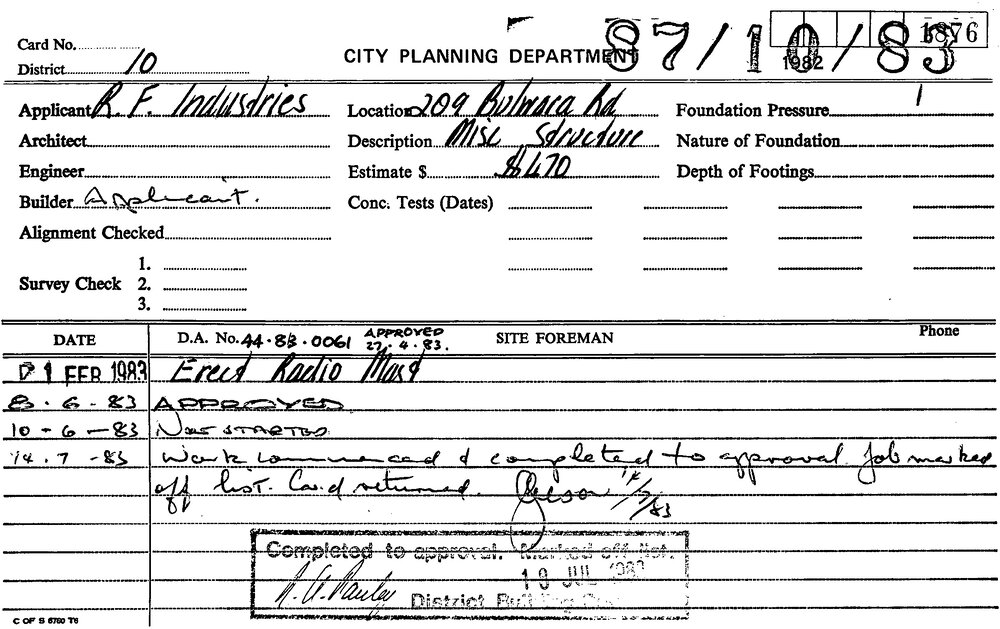 Card No. CITY PLANNING DEPARTMENT 87/10/83 1876
1982
District 10
Applicant R.F. Industries Location 209 Bulwara Rd Foundation Pressure
Architect Description Misc Structure Nature of Foundation
Engineer Estimate $ $470 Depth of Footings
Builder Applicant. Conc. Tests (Dates)
Alignment Checked
1.
Survey Check 2.
3.
DATE D.A. No. 44.83.0061 APPROVED 27.4.83. SITE FOREMAN Phone
1 FEB 1983 Erect Radio Mast
8.6-83 APPROVED
10-6-83 Not STARTED
14.7-83 Work commenced & completed to approval. Job marked
off list. Card returned. 14/7/83
Completed to approval. Marked off list.
18 JUL 1983
District Building
C OF S 6780 T6